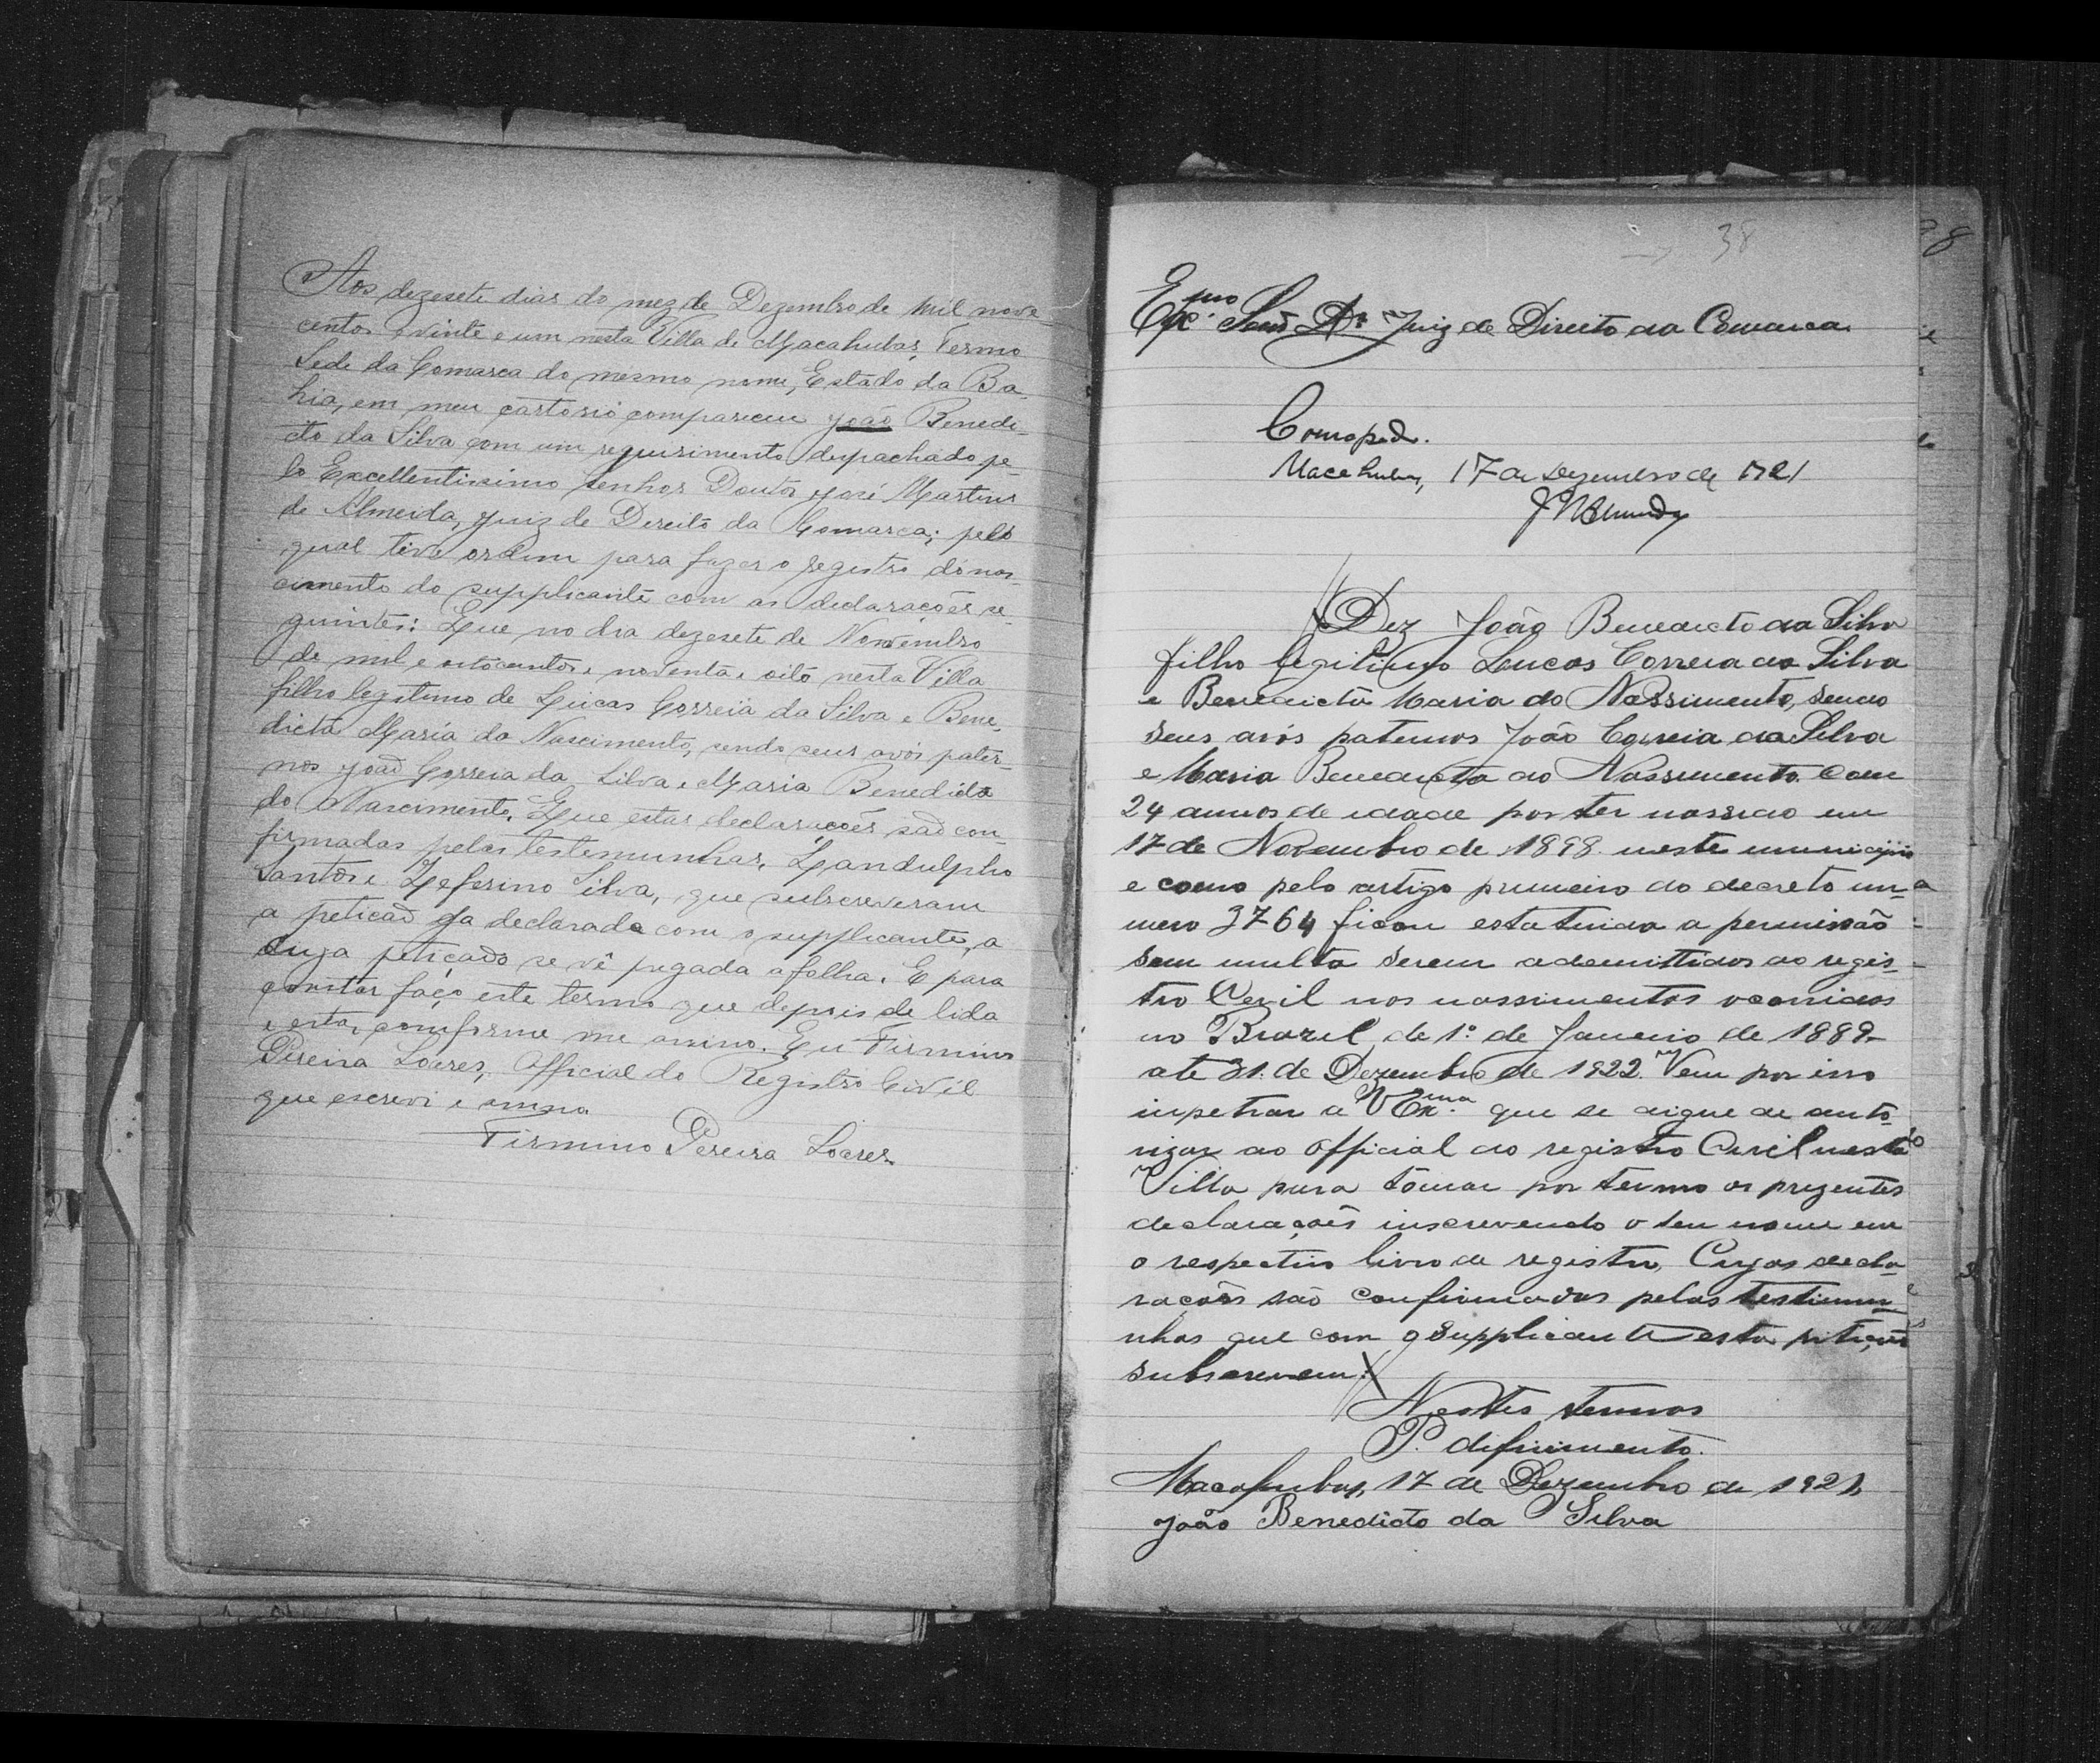 Aos dezesete dias do mez de Dezembro de mil nove
centos vinte e um nesta Villa de Macahubas, Termo
Sede da Comarca do mesmo nome, Estado da Ba-
hia, em meu cartorio compareceu João Benedi-
cto da Silva com um requirimento despachado pe-
lo Excellentissimo Senhor Doutor José Martins
de Almeida, Juiz de Direito da Comarca; pelo
qual tive ordem para fazer o registro do nas-
cimento do supplicante com as declarações se-
guintes: Que no dia dezesete de Novembro
de mil e oitocentos e noventa e oito nesta Villa
filho legitimo de Lucas Correia da Silva e Bene-
dicta Maria do Nascimento, sendo seus avós pater-
nos João Correia da Silva e Maria Benedicta
do Nascimento. Que estas declarações são con-
firmadas pelas testemunhas, Landulpho
Santos e Zeferino Silva, que subscreveram
a petição ja declarada com o supplicante, a
cuja petição se vê pegada a folha. E para
constar faço este termo que depois de lido
e estar conforme me assino. Eu Firmino
Pereira Loares, Official do Registro Civil
que escrevi e assino
Firmino Pereira Loares
38
Exmo Senr Dr Juiz de Direito da Comarca
Como pede.
Macahubas, 17 de Dezembro de 1921
Diz João Benedicto da Silva
filho legitimo Lucas Correia da Silva
e Benedicta Maria do Nassimento, sendo
seus avós paternos João Correia da Silva
e Maria Benedicta do Nassimento. Com
24 annos de idade por ter nassido em
17 de Novembro de 1898 neste municipio
e como pelo artigo primeiro do decreto nu-
mero 3764 ficou estatuida a permissão
sem multa serem ademittidos ao regis-
tro Cevil nos nassimentos ocorridos
no Brazil, de 1º de Janeiro de 1889
ate 31 de Dezembro de 1922. Vem por isso
inpetrar a V Exma que se digne de auto-
rizar ao official do registro Civil nesta
Villa para tomar por termo as prezentes
declarações inscrevendo o seu nome em
o respectivo livro de registro, Cujas decla-
rações são confirmadas pelas testimu-
nhas que com o supplicante esta petição
subscrevem.
Nestes termos
P. deferimento.
Macahubas, 17 de Dezembro de 1921.
João Benedicto da Silva